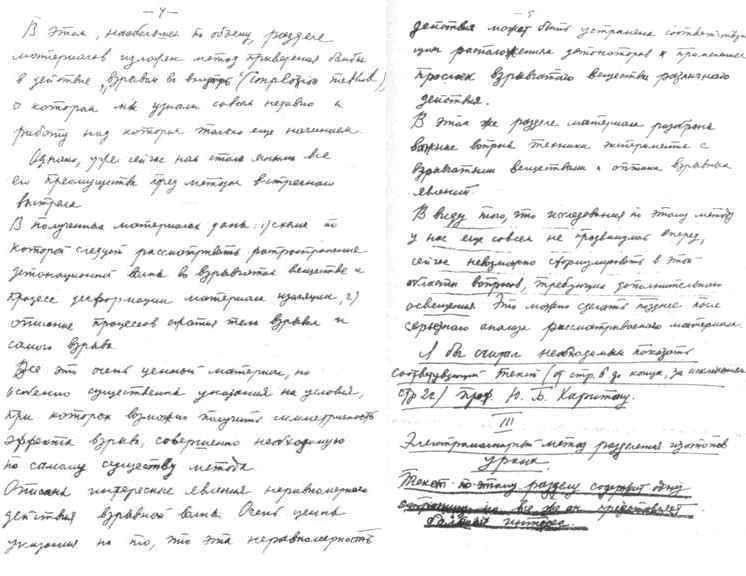 — 4 —
В этом, наибольшем по объему, разделе
материалов изложен метод приведения бомбы
в действие „взрывом во внутрь" (implosion method),
о котором мы узнали совсем недавно и
работу над которым только еще начинаем.
Однако, уже сейчас нам стало ясными все
его преимущества перед методом встречного
выстрела.
В полученных материалах даны: 1) схема по
которой следует рассматривать распространение
детонационной волны во взрывчатом веществе и
процесс деформации материала изоляции 2)
описание процессов сжатия тела взрывом и
самого взрыва.
Все это очень ценный материал, но
особенно существенны указания на условия,
при которых возможно получить симметричность
эффекта взрыва, совершенно необходимую
по самому существу метода
Описаны интересные явления неравномерного
действия взрывной волны. Очень ценны
указания на то, что эта неравномерность
— 5
действия может быть устранена соответствую-
щим расположением детонаторов и применением
прослоек взрывчатого вещества различного
действия.
В этом же разделе материала разобраны
важные вопросы техники эксперимента с
взрывчатыми веществами и оптика взрывных
явлений.
В виду того, что исследования по этому методу
у нас еще совсем не продвинулись вперед,
сейчас невозможно сформулировать в этой
области вопросы, требующие дополнительного
освещения. Это можно сделать позднее после
серьезного анализа рассматриваемого материала.
Я бы считал необходимым показать
соответствующий текст (от стр. 6 до конца, за исключением
стр 22) проф. Ю. Б. Харитону.
III
Электромагнитный метод разделения изотопов
урана.
Текст по этому разделу содержит одну
страницу но все же он представляет
большой интерес